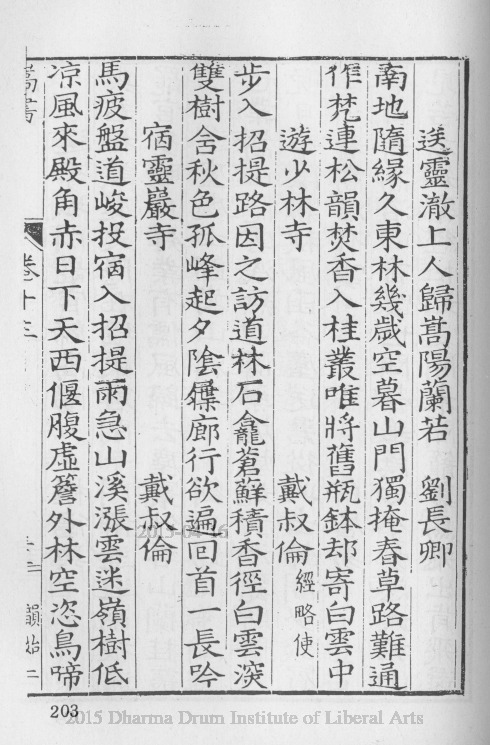 送靈澈上人歸嵩陽蘭若 劉長卿
南地隨緣久東林幾歲空暮山門獨掩春草路難通
作梵連松韻焚香入桂叢唯將舊瓶鉢却寄白雲中
遊少林寺 戴叔倫 經略使
步入招提路因之訪道林石龕蒼蘚積香徑白雲深
雙樹含秋色孤峰起夕陰屧廊行欲遍回首一長吟
宿靈巖寺 戴叔倫
馬疲盤道峻投宿入招提雨急山溪漲雲迷嶺樹低
凉風來殿角赤日下天西偃腹虛簷外林空恣鳥啼
嵩書 卷十三 韻始二
203
2015-04-16
2015 Dharma Drum Institute of Liberal Arts